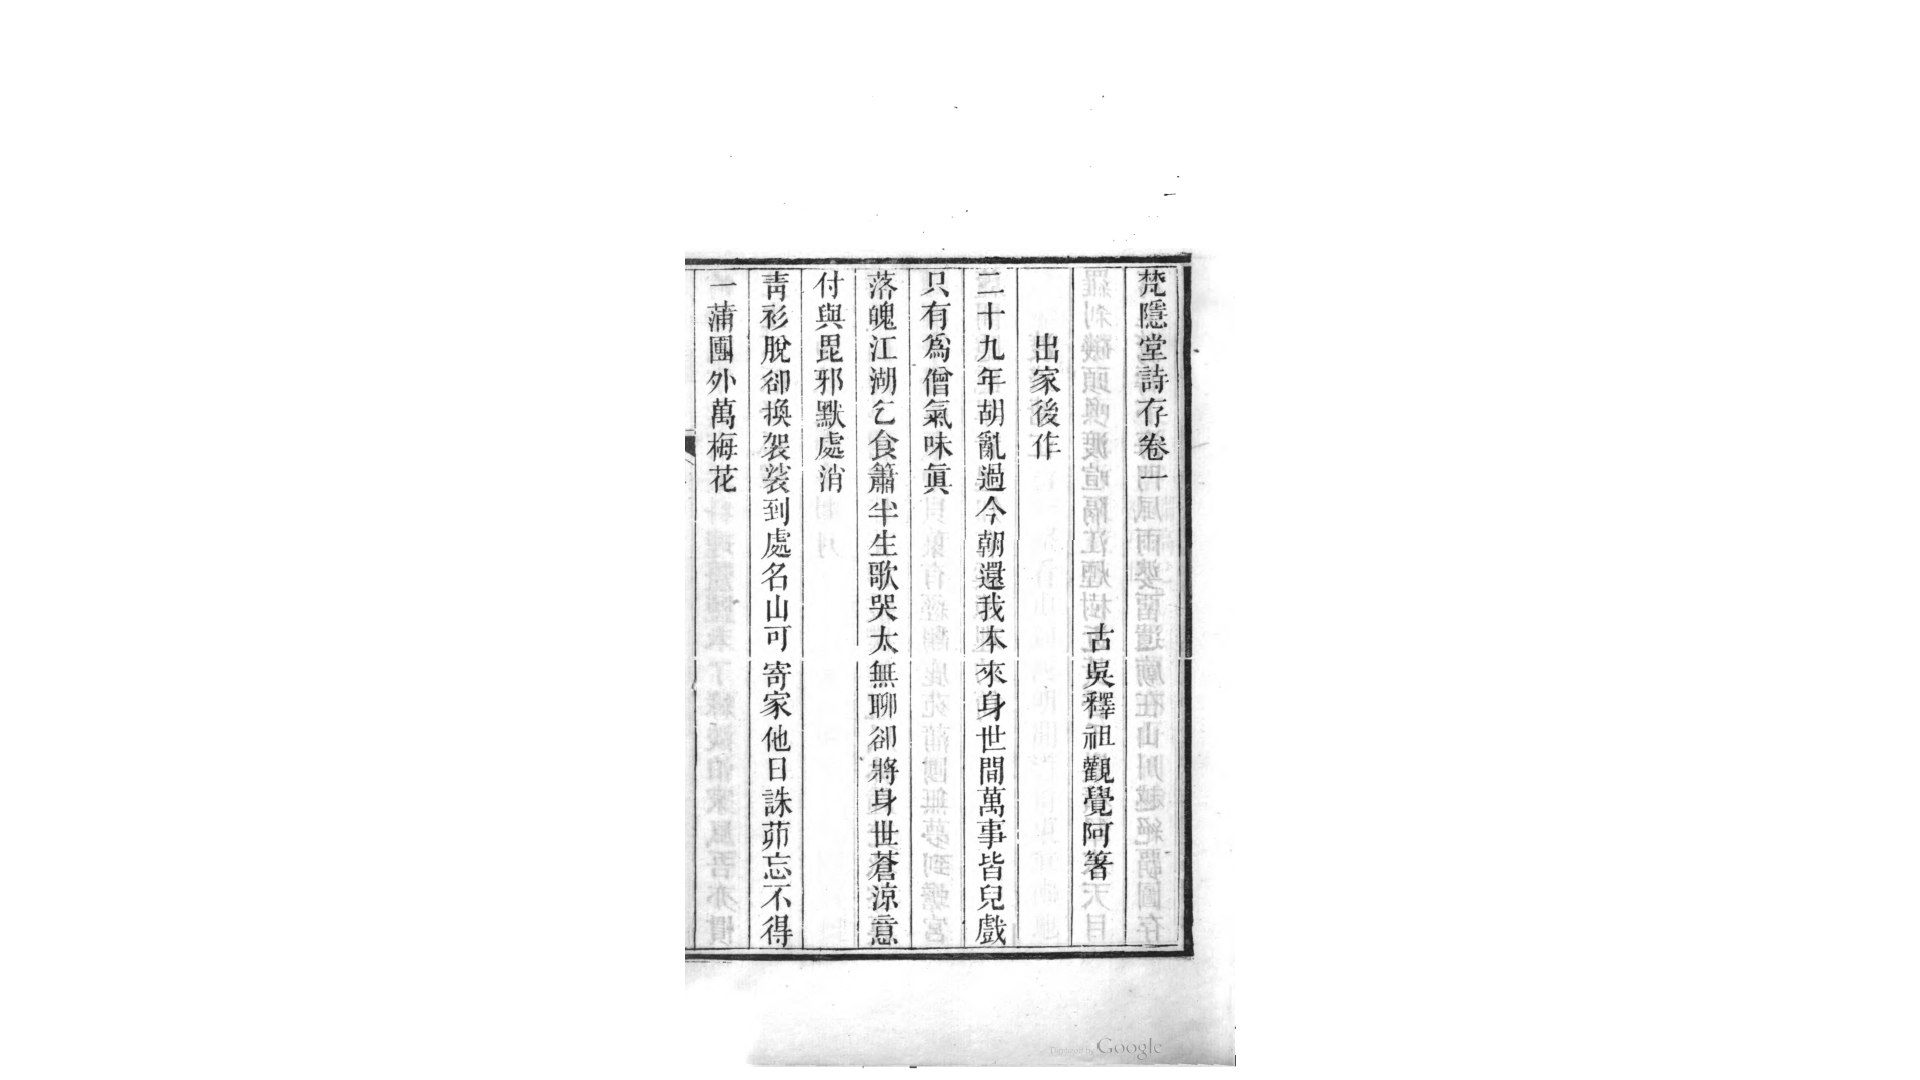 梵隱堂詩存卷一
古吳釋祖觀覺阿箸
出家後作
二十九年胡亂過今朝還我本來身世間萬事皆兒戲
只有爲僧氣味眞
落魄江湖乞食簫半生歌哭太無聊卻將身世蒼涼意
付與毘邪默處消
靑衫脫卻換袈裟到處名山可寄家他日誅茆忘不得
一蒲團外萬梅花
Digitized by Google